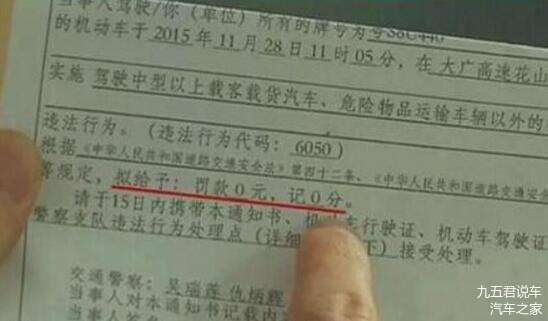 当事人驾驶/你（单位）所有的牌号为
的机动车于2015年11月28日11时05分，在大广高速花山
实施 驾驶中型以上载客载货汽车、危险物品运输车辆以外的
违法行为。（违法行为代码：6050）
根据《中华人民共和国道路交通安全法》第四十二条、《中华人民共和国道路交通安全
等规定，拟给予：罚款0元，记0分。
请于15日内携带本通知书、机动车行驶证、机动车驾驶证
警察支队违法行为处理点（详细 下）接受处理。
交通警察：吴瑞莲 仇炳辉
当事人对本通知书记载内
九五君说车
汽车之家